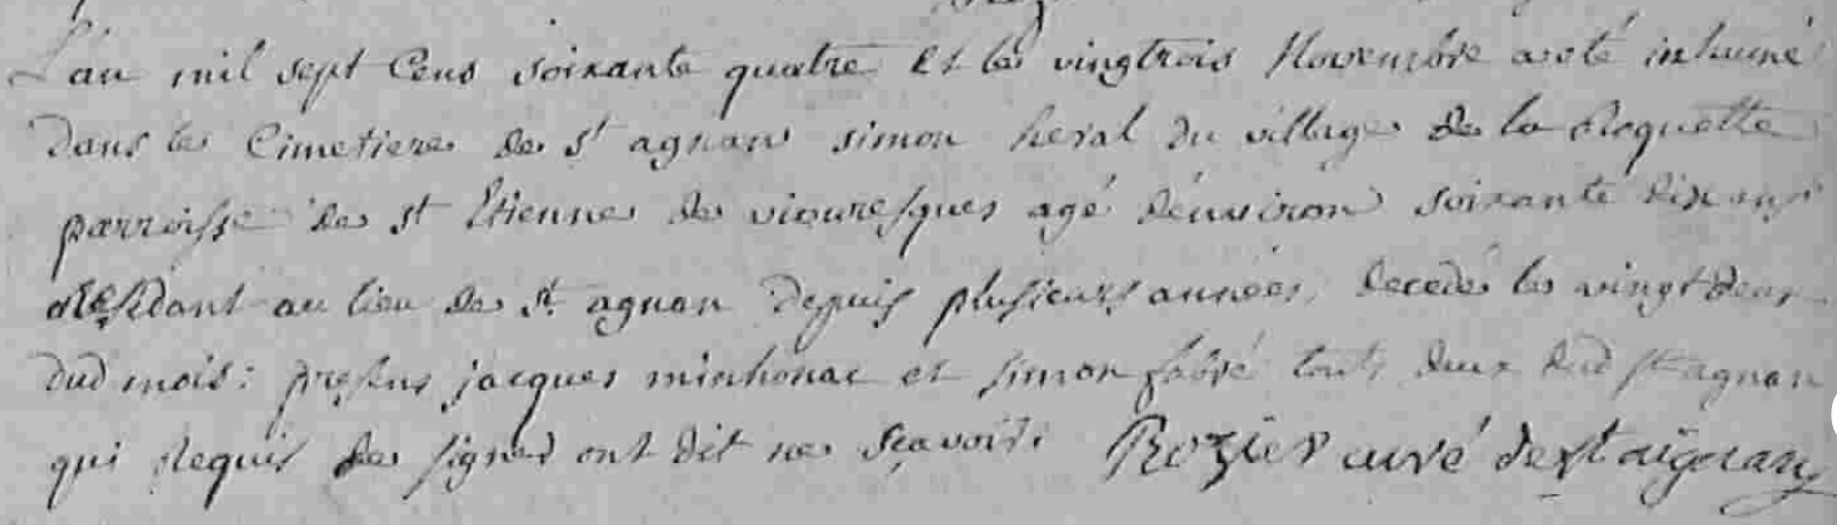 L'an mil sept Cens soixante quatre et le vingtrois Novembre a eté inhumé
dans le Cimetiere de St agnan simon heral du village de la Roquette
parroisse de st Etienne de viouresques agé d'environ soixante dix ans
residant au lieu de st agnan depuis plusieurs années, decedé le vingt deux
dud mois: presens jacques minhonac et simon fabré touts deux dud st agnan
qui requis de signer ont dit ne sçavoir. Rozier curé de st aignan